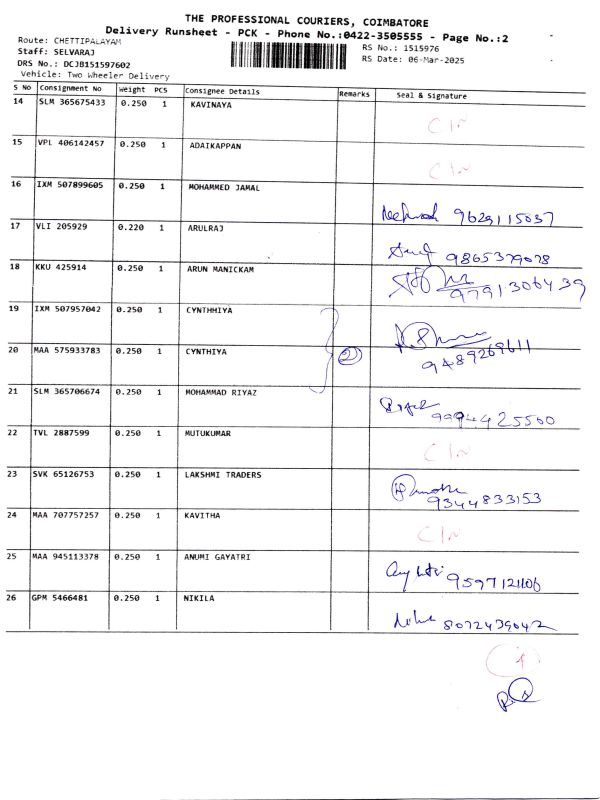 THE PROFESSIONAL COURIERS, COIMBATORE
Delivery Runsheet - PCK - Phone No.:0422-3505555 - Page No.:2
Route: CHETTIPALAYAM
RS No.: 1515976
Staff: SELVARAJ
RS Date: 06-Mar-2025
DRS No.: DCJB151597602
Vehicle: Two Wheeler Delivery
S No Consignment No Weight PCS Consignee Details Remarks Seal & Signature
14 SLM 365675433 0.250 1 KAVINAYA C In
15 VPL 406142457 0.250 1 ADAIKAPPAN C In
16 IXM 507899605 0.250 1 MOHAMMED JAMAL 9629115037
17 VLI 205929 0.220 1 ARULRAJ 9865379078
18 KKU 425914 0.250 1 ARUN MANICKAM 9791306439
19 IXM 507957042 0.250 1 CYNTHHIYA
20 MAA 575933783 0.250 1 CYNTHIYA 2 9489269611
21 SLM 365706674 0.250 1 MOHAMMAD RIYAZ 9994425500
22 TVL 2887599 0.250 1 MUTUKUMAR C In
23 SVK 65126753 0.250 1 LAKSHMI TRADERS 9344833153
24 MAA 707757257 0.250 1 KAVITHA C In
25 MAA 945113378 0.250 1 ANUMI GAYATRI 9597121106
26 GPM 5466481 0.250 1 NIKILA 8072439042
4